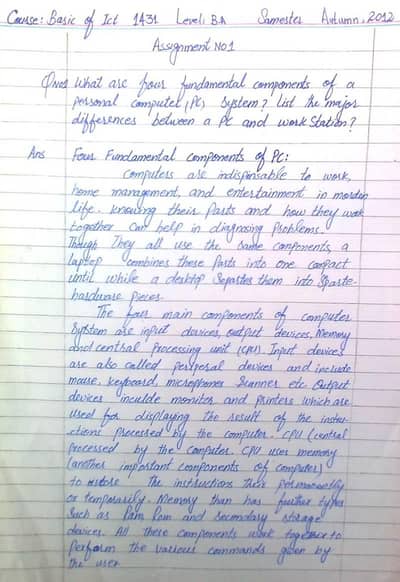 Course: Basic of Ict 1431 Level: B.A Samester Autumn, 2012
Assignment No1
QNo1 What are four fundamental components of a
personal computer (PC) System? List the major
differences between a PC and work Station?
Ans Four Fundamental components of PC:
Computers are indispansable to work,
home management, and entertainment in mordan
life. knowing their Parts and how they work
together Can help in diagnosing Problems.
Though They all use the same components, a
laptop combines these Parts into one compact
until while a desktop Separtes them into Sparte-
hardware pieces.
The four main components of computer
System are input davices, output devices, Memory
and central Processing unit (CPU). Input devices
are also called peripseal devices and include
mouse, keyboard, microphones Scanner etc. Output
devices inculde monitor and printers which are
used for displaying the result of the instru-
-ctions processed by the computer. CPU (central
processed by the computer. CPU uses memory
(another important components of computer)
to restore The instructions their permanetly
or temporarily. Memory than has further types
Such as Ram Rom and Secondary storage
devices. All these components work together to
Perform the various commands given by
the user